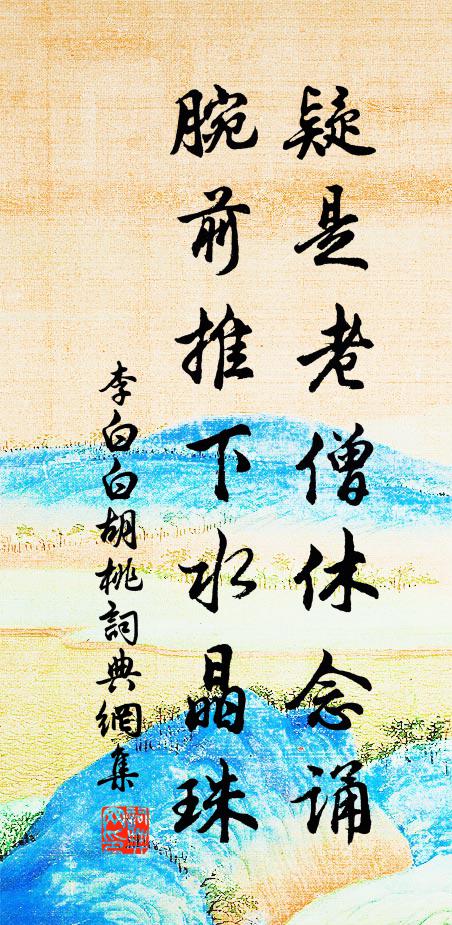 疑是老僧休念诵
腕前推下水晶珠
李白白胡桃詞典網集